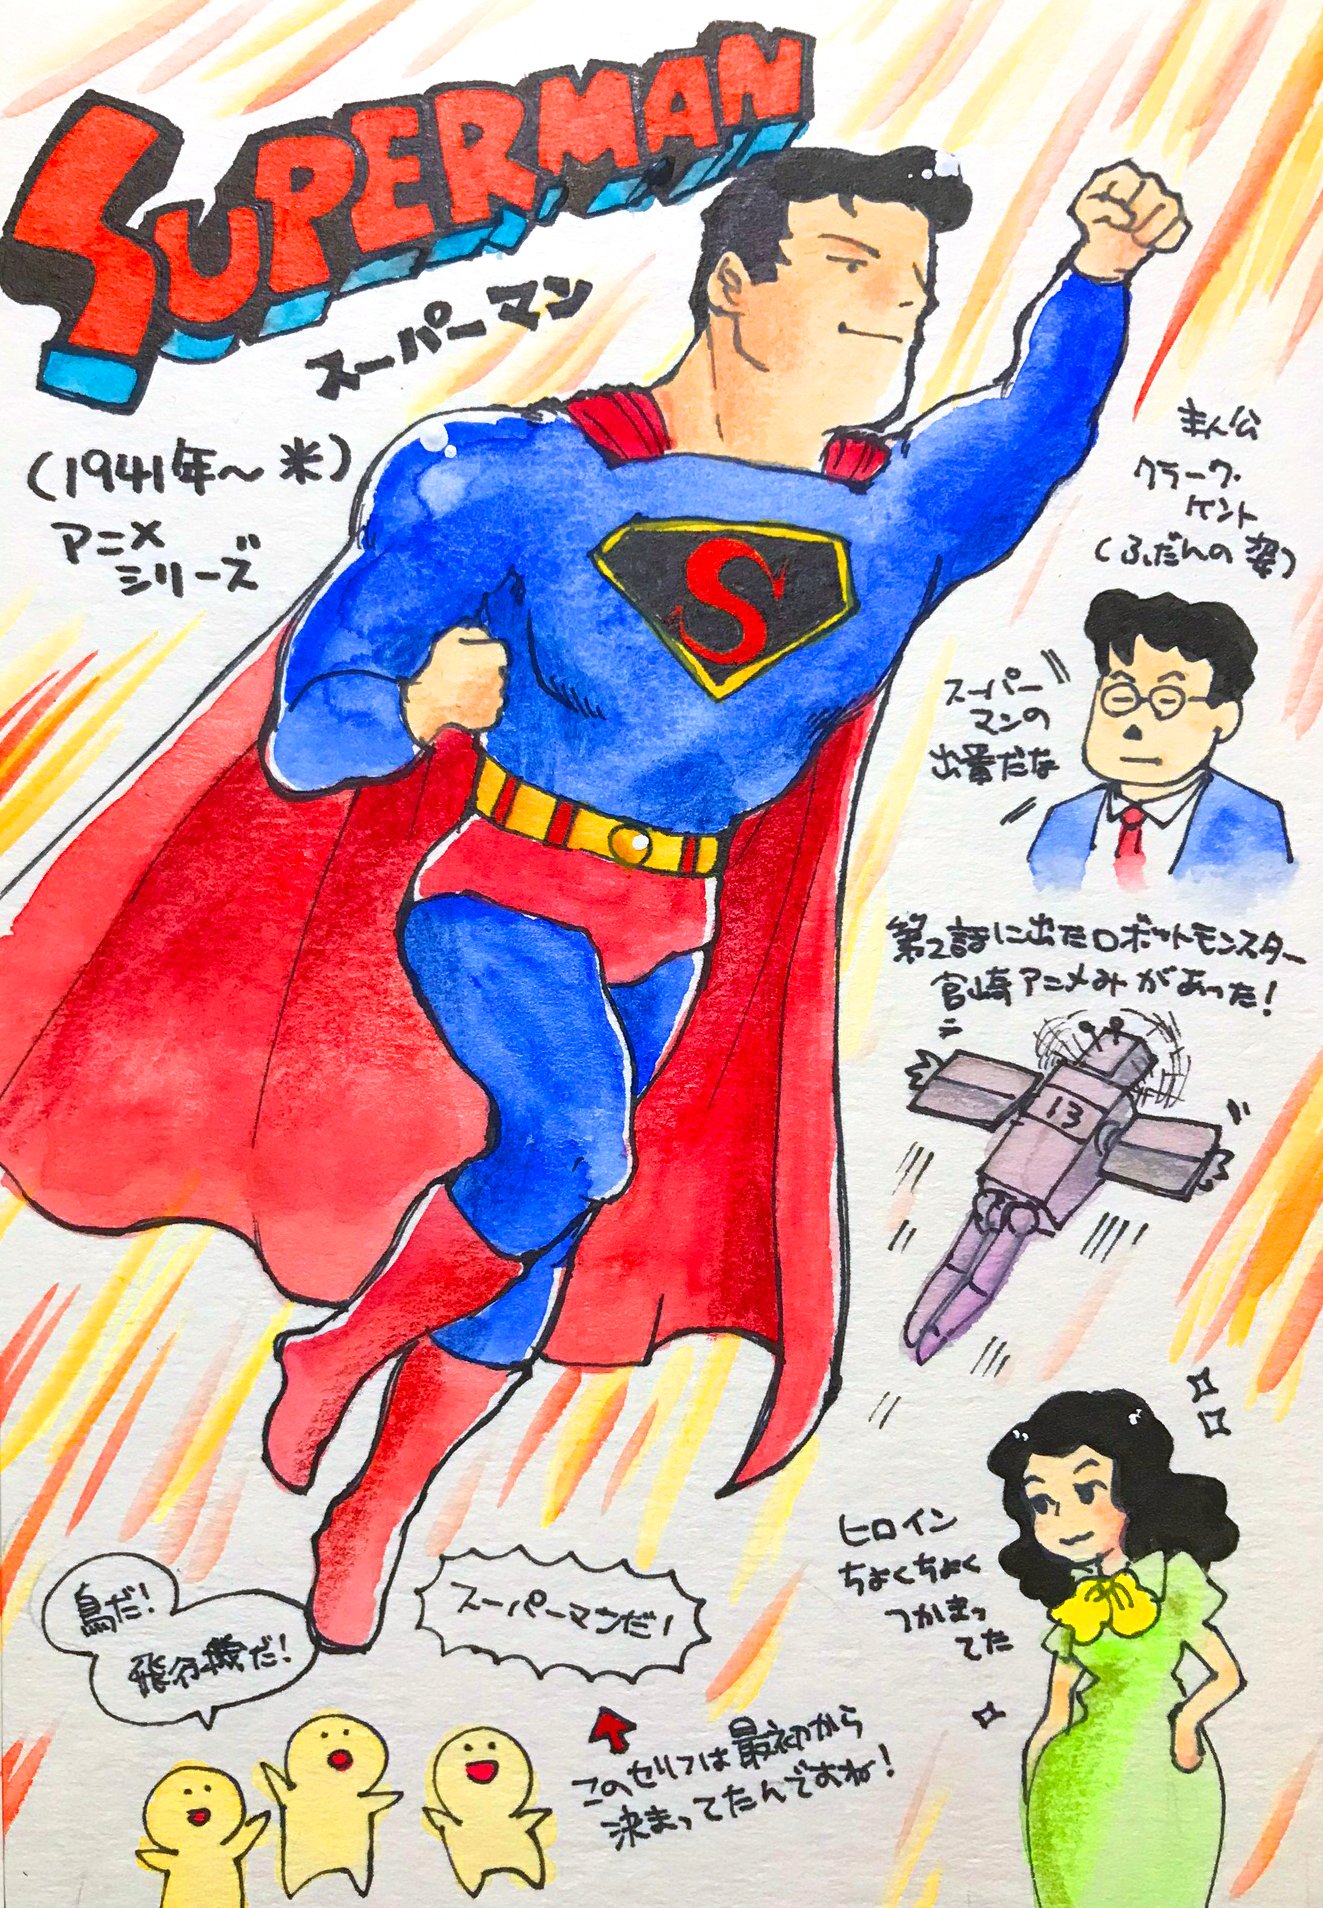 SUPERMAN
スーパーマン
(1941年〜 米)
アニメ
シリーズ
S
主人公
クラーク・
ケント
(ふだんの姿)
スーパー
マンの
出番だな
第2話に出たロボットモンスター
宮崎アニメみがあった!
13
ヒロイン
ちょくちょく
つかまっ
てた
鳥だ!
飛行機だ!
スーパーマンだ!
このセリフは最初から
決まってたんですね!